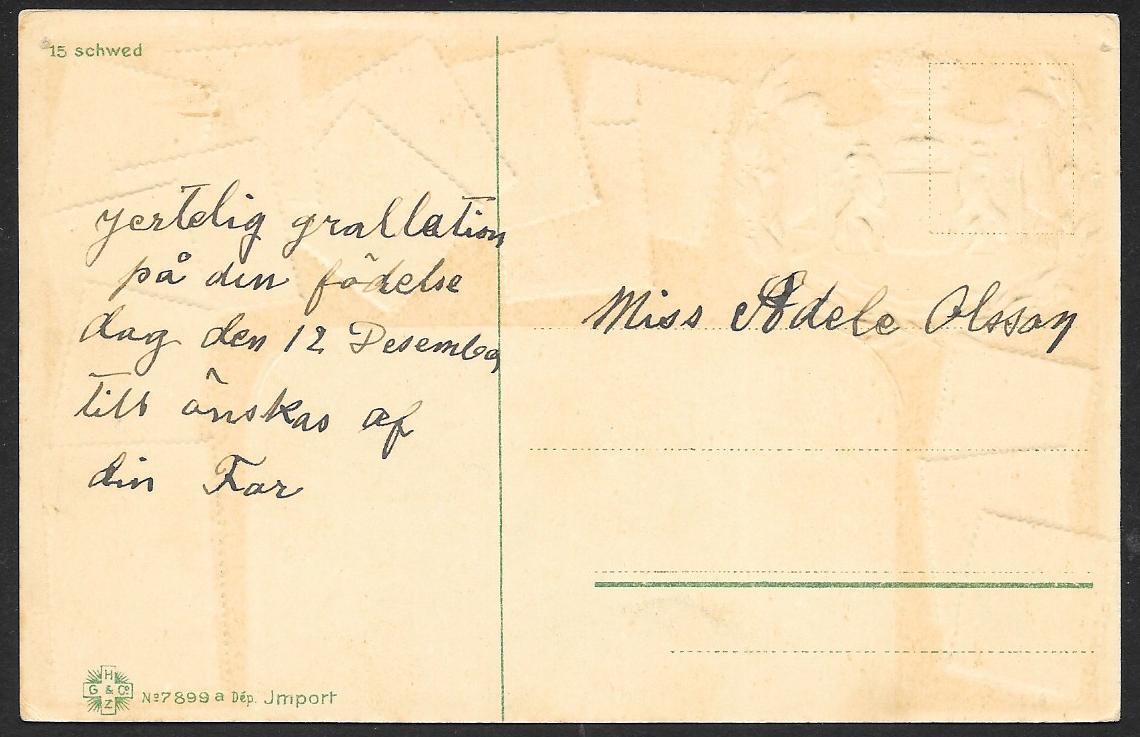 15 schwed
yertelig grallation
på din födelse
dag den 12 Desember
till önskas af
din Far
Miss Adele Olsson
H
G & Co
Z
No 7899 a Dép. Jmport